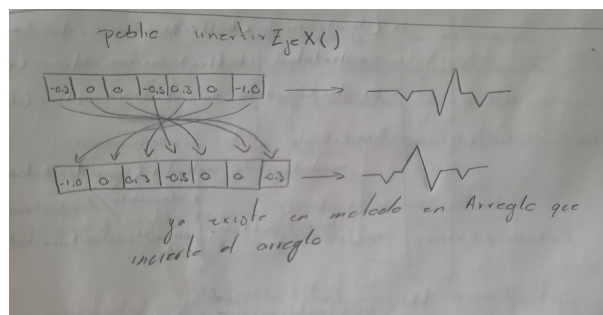 public invertirEjeX()
-0.3 0 0 -0.5 0.3 0 -1.0
-1.0 0 0.3 -0.5 0 0 -0.3
ya existe un metodo en Arreglo que
invierte el arreglo